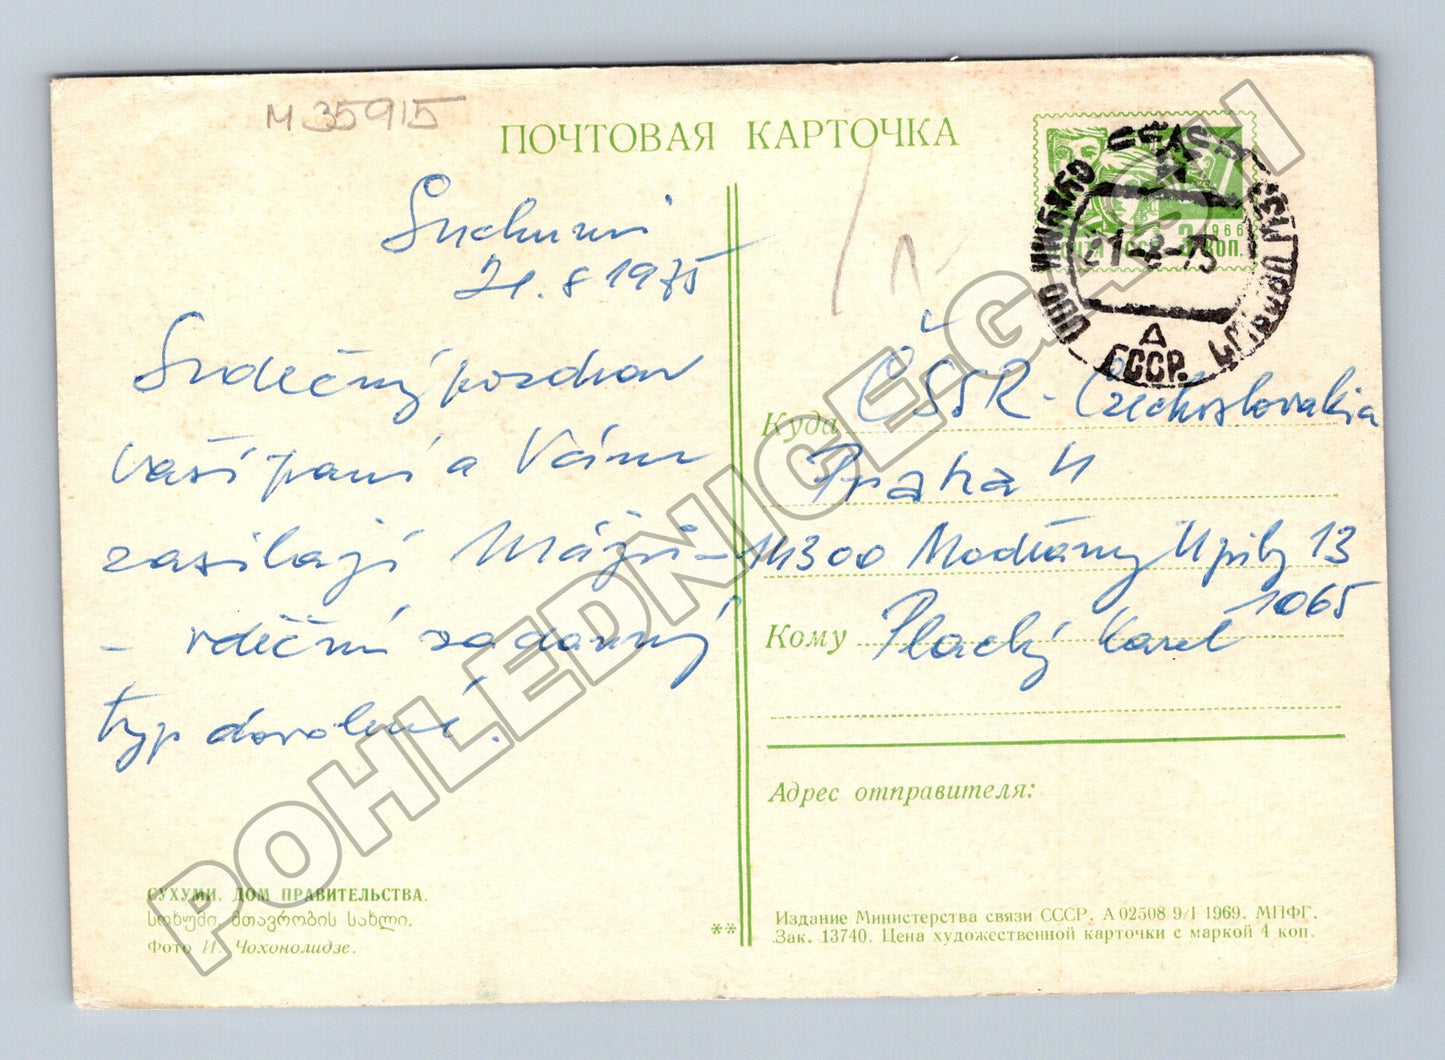 M 35915
ПОЧТОВАЯ КАРТОЧКА
Suchumi
21.8 1975
Srdečný pozdrav
Vaší paní a Vám
zasílají
– vděční za daný
typ dovolené.
1966
ПОЧТА СССР 3 КОП.
СУХУМИ
21-8-75
СССР
Куда ČSSR - Czechoslovakia
Praha 4
14300 Modřany U pily 13
1065
Кому Plachý Karel
Адрес отправителя:
СУХУМИ. ДОМ ПРАВИТЕЛЬСТВА.
სოხუმი. მთავრობის სახლი.
Фото И. Чохонолидзе.
**
Издание Министерства связи СССР. А 02508 9/I 1969. МПФГ.
Зак. 13740. Цена художественной карточки с маркой 4 коп.
POHLEDNICE.GARSH